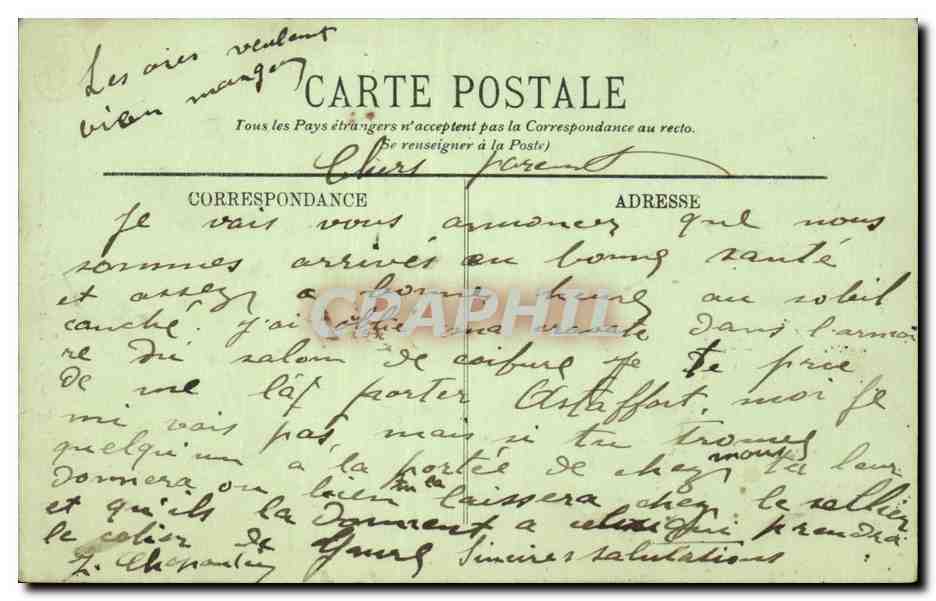 Les oies veulent
bien manger
CARTE POSTALE
Tous les Pays étrangers n'acceptent pas la Correspondance au recto.
(Se renseigner à la Poste)
Chers parent
CORRESPONDANCE
ADRESSE
Je vais vous annoncer que nous
sommes arrivés en bonne santé
et assez a bonne heure au soleil
couché. j'ai ma cravate dans l'armoi
re du salom de coifure je te prie
de me porter Astaffort, moi je
mi vais pas, mais si tu trouves
quelqu'un a la portée de chez nous tu leur
donnera ou bien tu la laissera chez le sellier
et qu'ils la donnent a celui qui prendra
le colier de Sincires salutations
CPAPHIL